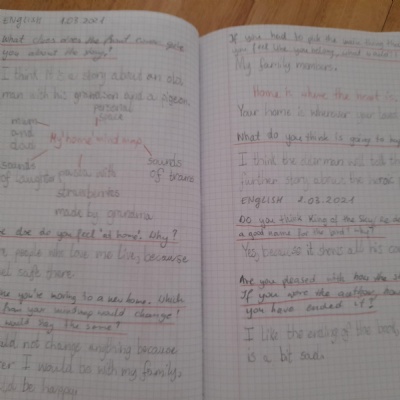 ENGLISH 1.03.2021
What clues does the front cover give
you about the story?
I think it's a story about an old
man with his grandson and a pigeon.
personal
space
mom
and
dad
My 'home' mind map
sounds
of laughter
pasta with
strawberries
made by grandma
sounds
of trains
else do you feel "at home". Why?
people who love me live, because
feel safe there.
you're moving to a new home. Which
from your mindmap would change?
would stay the same?
would not change anything because
I would be with my family,
be happy.
If you had to pick the main thing that
you feel like you belong, what would
My family members.
Home is where the heart is
Your home is wherever your loved
What do you think is going to
I think the old man will tell the
further story about the
ENGLISH 2.03.2021
Do you think King of the Sky is
a good name for the bird? Why?
Yes, because it shows all his
Are you pleased with how the
If you were the author, how
you have ended it?
I like the ending of the book,
is a bit sad.